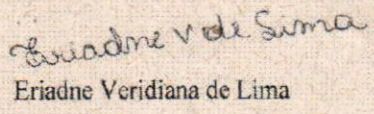 Eriadne V de Lima
Eriadne Veridiana de Lima